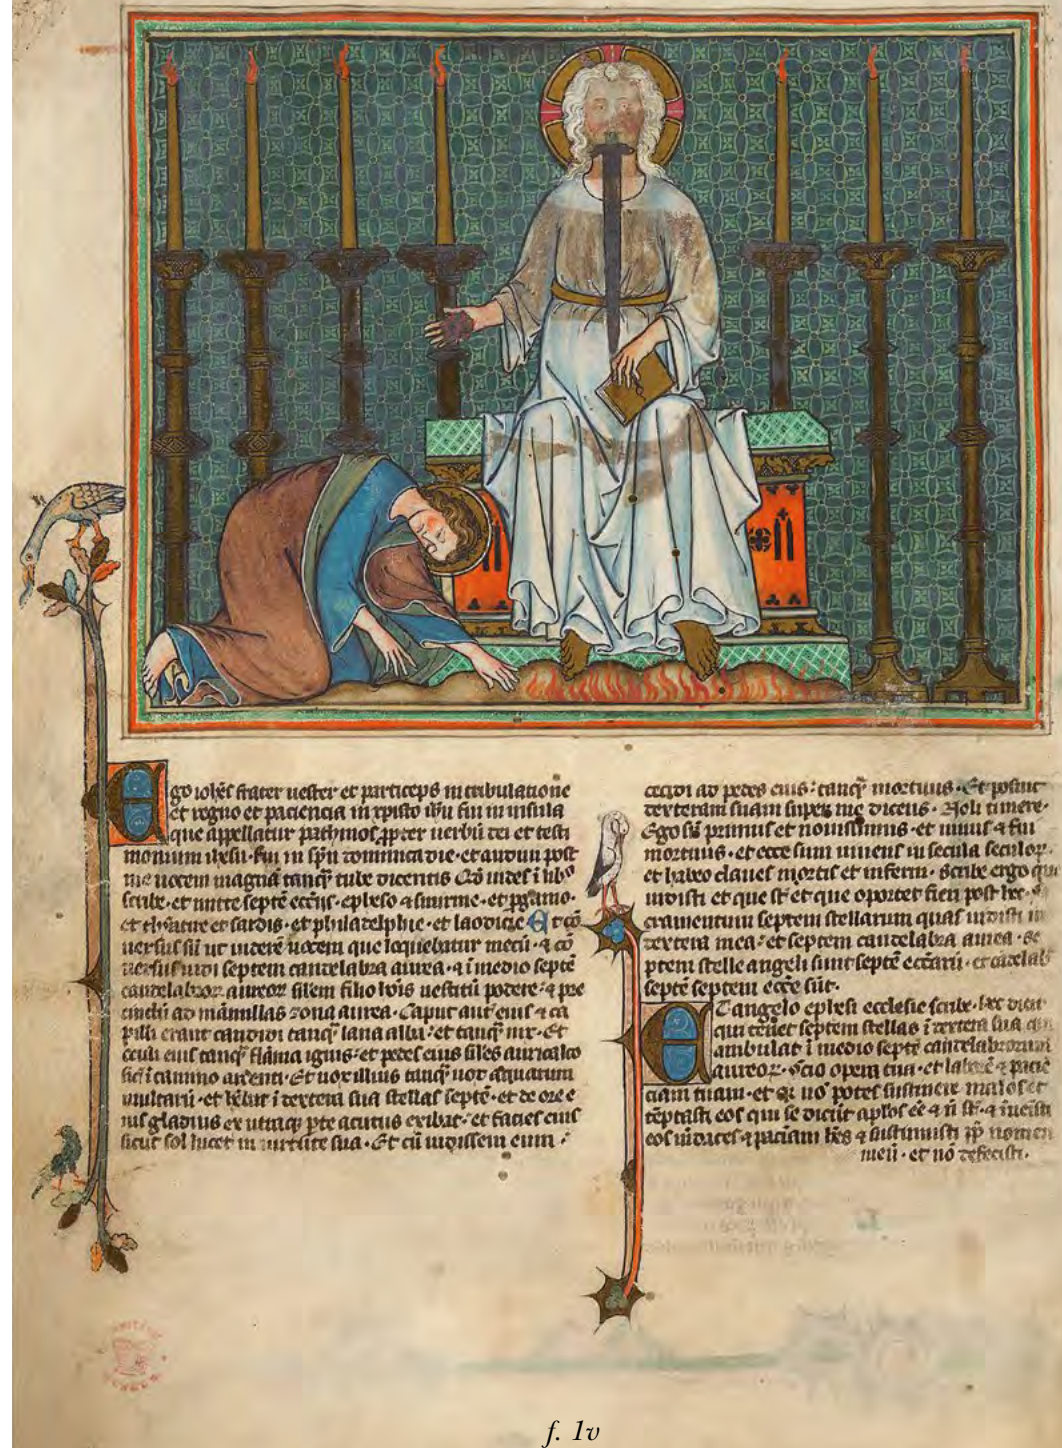 Ego ioh̄es frater uester et particeps in tribulatione
et regno et paciencia in xp̄isto ih̄u fui in insula
que appellatur pathmos ꝓpter uerbū dei et testi
monium ihesu · fui in sp̄u dominica die · et audiui post
me uocem magnā tanq̄ tube dicentis Qd̄ uides ī lib̾o
scribe · et mitte septē ecc̄iis · epheso ⁊ smirme · et ꝑgamo ·
et thyatire et sardis · et philadelphie · et laodicie Et cō
uersus sū ut uiderē uocem que loquebatur mecū · ⁊ cō
uersus uidi septem candelabra aurea · ⁊ ī medio septē
candelabroꝝ aureoꝝ silem filio hoīs uestitū podere · ⁊ pre
cinctū ad māmillas zona aurea · Caput aut̄ eius ⁊ ca
pilli erant candidi tanq̄ lana alba · et tanq̄ nix · Et
oculi eius tanq̄ flāma ignis · et pedes eius siles auricalco
sic̄ ī camino ardenti · Et uox illius tanq̄ uox aquarum
multarū · et hēbat ī dextera sua stellas septē · et de ore e
ius gladius ex utraq̄ ꝑte acutus exibat · et facies eius
sicut sol lucet in uirtute sua · Et cū uidissem eum ·
cecidi ad pedes eius · tanq̄ mortuus · Et posuit
dexteram suam super me dicens · Noli timere ·
Ego sū primus et nouissimus · et uiuus ⁊ fui
mortuus · et ecce sum uiuens in secula seculoꝝ ·
et habeo claues mortis et inferni · Scribe ergo que
uidisti et que st̄ et que oportet fieri post hec · Sa
cramentum septem stellarum quas uidisti in
dextera mea · et septem candelabra aurea · Se
ptem stelle angeli sunt septē ecc̄iarū · et cādelab
septē septem ecc̄ie sūt ·
Et angelo ephesi ecclesie scribe · hec dicit
qui tenet septem stellas ī dextera sua qui
ambulat ī medio septē candelabrorum
aureoꝝ · Scio opera tua · et laborē ⁊ pacie
ciam tuam · et qr̄ nō potes sustinere malos et
tēptasti eos qui se dicūt aplos eē ⁊ n̄ st̄ · ⁊ īuēisti
eos mēdaces ⁊ paciam hēs ⁊ sustinuisti ꝓp̄ nomen
meū · et nō defecisti ·
f. 1v